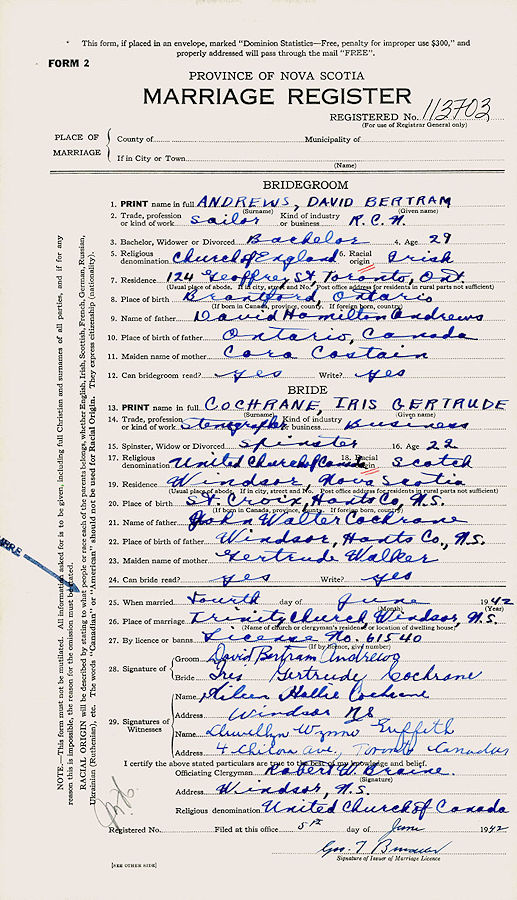 This form, if placed in an envelope, marked "Dominion Statistics—Free, penalty for improper use $300," and
properly addressed will pass through the mail "FREE".
FORM 2
PROVINCE OF NOVA SCOTIA
MARRIAGE REGISTER
REGISTERED No. 113703
(For use of Registrar General only)
PLACE OF MARRIAGE
County of Municipality of
If in City or Town
(Name)
BRIDEGROOM
1. PRINT name in full ANDREWS, DAVID BERTRAM
(Surname) (Given name)
2. Trade, profession or kind of work Sailor Kind of industry or business R.C.N.
3. Bachelor, Widower or Divorced Bachelor 4. Age 29
5. Religious denomination Church of England 6. Racial origin Irish
7. Residence 124 Geoffrey St, Toronto, Ont
(Usual place of abode. If in city, street and No. Post office address for residents in rural parts not sufficient)
8. Place of birth Brantford, Ontario
(If born in Canada, province, county. If foreign born, country)
9. Name of father David Hamilton Andrews
10. Place of birth of father Ontario, Canada
11. Maiden name of mother Cora Costain
12. Can bridegroom read? yes Write? yes
BRIDE
13. PRINT name in full COCHRANE, IRIS GERTRUDE
(Surname) (Given name)
14. Trade, profession or kind of work Stenographer Kind of industry or business Business
15. Spinster, Widow or Divorced Spinster 16. Age 22
17. Religious denomination United Church of Canada 18. Racial origin Scotch
19. Residence Windsor, Nova Scotia
(Usual place of abode. If in city, street and No. Post office address for residents in rural parts not sufficient)
20. Place of birth St. Croix, Hants Co, N.S.
(If born in Canada, province, county. If foreign born, country)
21. Name of father John Walter Cochrane
22. Place of birth of father Windsor, Hants Co., N.S.
23. Maiden name of mother Gertrude Walker
24. Can bride read? yes Write? yes
25. When married Fourth day of June 1942
(Month) (Year)
26. Place of marriage Trinity Church Windsor, N.S.
(Name of church or clergyman's residence or location of dwelling house)
27. By licence or banns License No. 61540
(If by licence, give number)
28. Signature of
Groom David Bertram Andrews
Bride Iris Gertrude Cochrane
29. Signatures of Witnesses
Name Hollie Cochrane
Address Windsor NS
Name Llewellyn Wynne Griffith
Address Ave., Toronto Canada
I certify the above stated particulars are true to the best of my knowledge and belief.
Officiating Clergyman Robert W. Braine.
(Signature)
Address Windsor, N.S.
Religious denomination United Church of Canada
Registered No. Filed at this office 5th day of June 1942
Geo. T
Signature of Issuer of Marriage Licence
[SEE OTHER SIDE]
NOTE.—This form must not be mutilated. All information asked for is to be given, including full Christian and surnames of all parties, and if for any
reason this is impossible, the reason for the omission must be stated.
RACIAL ORIGIN will be described by stating to what people or race each of the parents belongs, whether English, Irish, Scottish, French, German, Russian,
Ukrainian (Ruthenian), etc. The words "Canadian" or "American" should not be used for Racial Origin. They express citizenship (nationality).